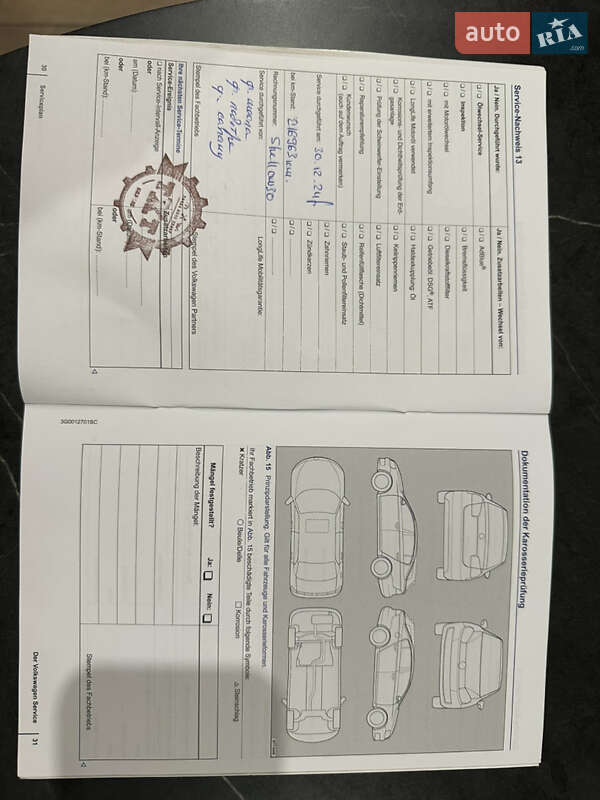 auto RIA.com
Service-Nachweis 13
Ja / Nein, Durchgeführt wurde:
Ölwechsel-Service
Inspektion
mit Motorölwechsel
mit erweitertem Inspektionsumfang
LongLife Motoröl verwendet
Korrosions- und Dichtheitsprüfung der Erd-
gasanlage
Prüfung der Scheinwerfer-Einstellung
Reparaturempfehlung
Kundenwunsch
(sich auf dem Auftrag vermerken)
Service durchgeführt am: 30.12.24
bei km-Stand: 216963 км.
Rechnungsnummer: Shell 0W30
Service durchgeführt von:
Ja / Nein, Zusatzarbeiten – Wechsel von:
AdBlue®
Bremsflüssigkeit
Dieselkraftstofffilter
Getriebeöl: DSG®, ATF
Haldexkupplung: Öl
Keilrippenriemen
Luftfiltereinsatz
Reifenfüllflasche (Dichtmittel)
Staub- und Pollenfiltereinsatz
Zahnriemen
Zündkerzen
LongLife Mobilitätsgarantie:
Stempel des Fachbetriebs
Stempel des Volkswagen Partners
Ihre nächsten Service-Termine
Service-Ereignis
nach Service-Intervall-Anzeige
oder
am (Datum):
oder
bei (km-Stand):
Zusatzarbeiten
am (Datum):
oder
bei (km-Stand):
30 Serviceplan
3G0012701BC
Dokumentation der Karosserieprüfung
Abb. 15 Prinzipdarstellung. Gilt für alle Fahrzeuge und Karosserieformen.
Ihr Fachbetrieb markiert in Abb. 15 beschädigte Teile durch folgende Symbole:
× Kratzer ○ Beule/Delle □ Korrosion △ Steinschlag
Mängel festgestellt? Ja: Nein:
Beschreibung der Mängel:
Stempel des Fachbetriebs
Der Volkswagen Service 31